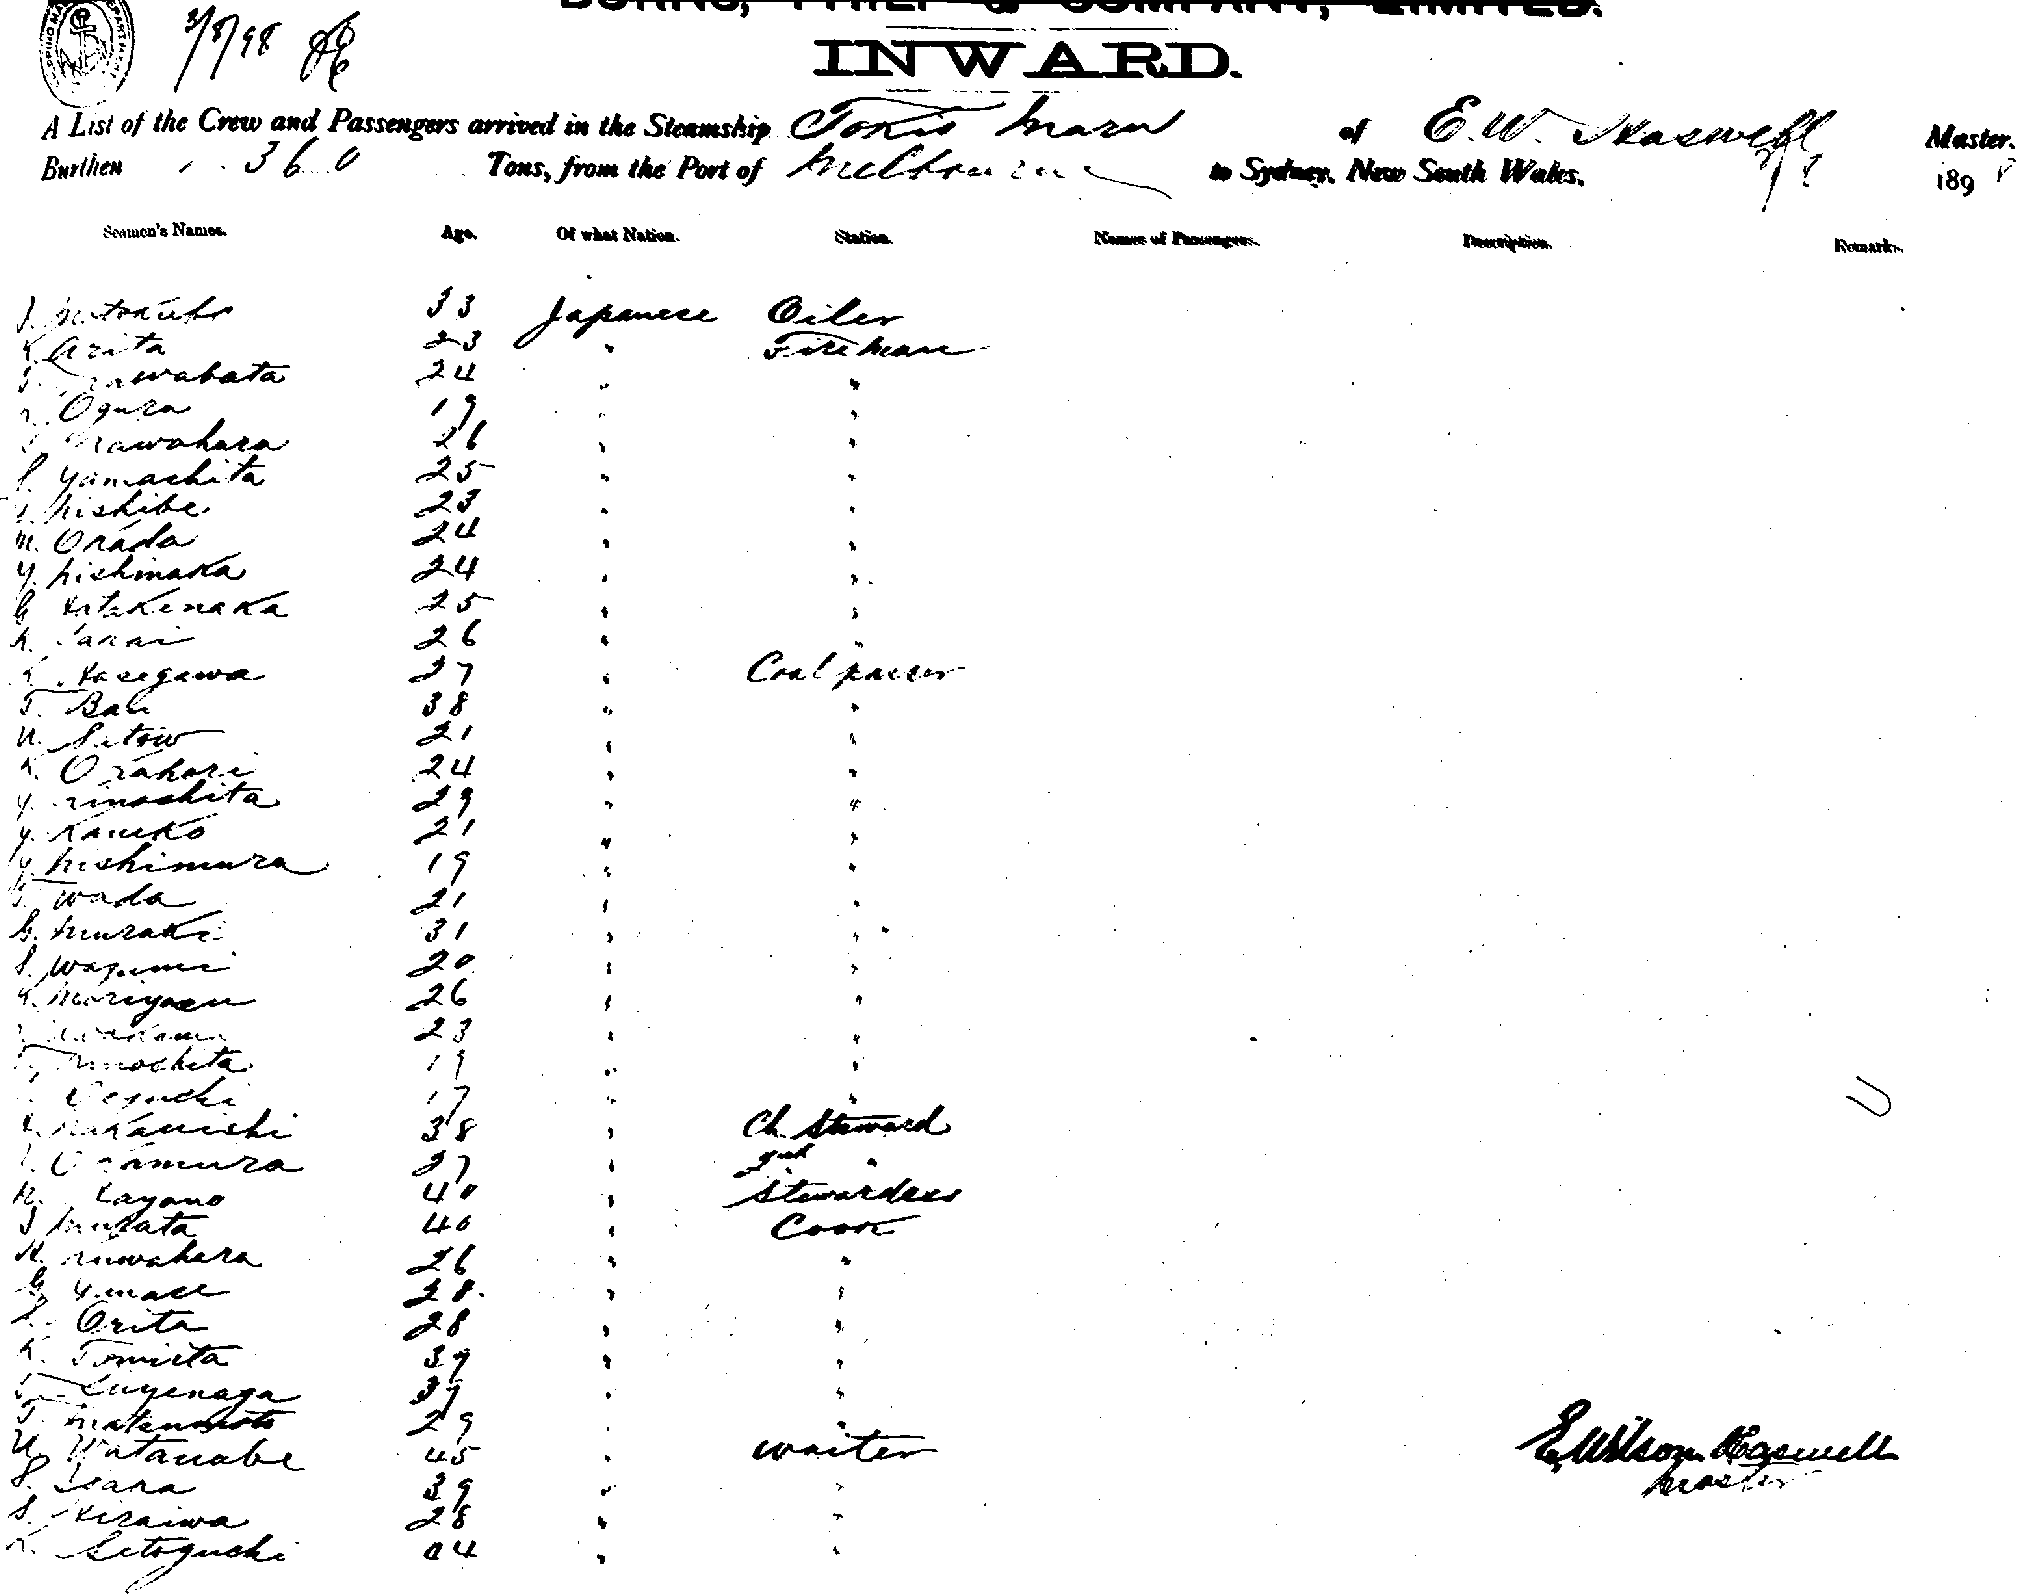 3/8/98
BURNS, PHILP & COMPANY, LIMITED.
INWARD.
A List of the Crew and Passengers arrived in the Steamship Tokio Maru of E. W. Haswell Master.
Burthen 360 Tons, from the Port of Melbourne to Sydney, New South Wales, 1898
Seamen's Names. Age. Of what Nation. Station. Names of Passengers. Description. Remarks.
33 Japanese Oiler
K. Arita 23 " Fireman
24 " "
Ogura 19 " "
26 " "
S. Yamashita 25 " "
Nishibe 23 " "
M. Okada 24 " "
Y. Nishinaka 24 " "
G. 25 " "
K. Sakai 26 " "
K. Hasegawa 27 " Coal passer
T. Ban 38 " "
U. Satow 21 " "
K. 24 " "
Y. Kinoshita 29 " "
Y. Kaneko 21 " "
Y. Nishimura 19 " "
T. Wada 21 " "
G. Muraki 31 " "
S. 20 " "
K. 26 " "
23 " "
Kinoshita 19 " "
17 " "
Nakanishi 38 " Ch Steward
Okamura 27 " 2nd "
Kayano 40 " Stewardess
Murata 40 " Cook
K. Kuwahara 26 " "
G. 28 " "
Orita 28 " "
K. Tomita 39 " "
T. Suyenaga 37 " "
T. Matsumoto 29 " "
U. Watanabe 45 " Waiter
S. 39 " "
S. Hiraiwa 28 " "
K. Setoguchi " "
E. Wilson Haswell
Master